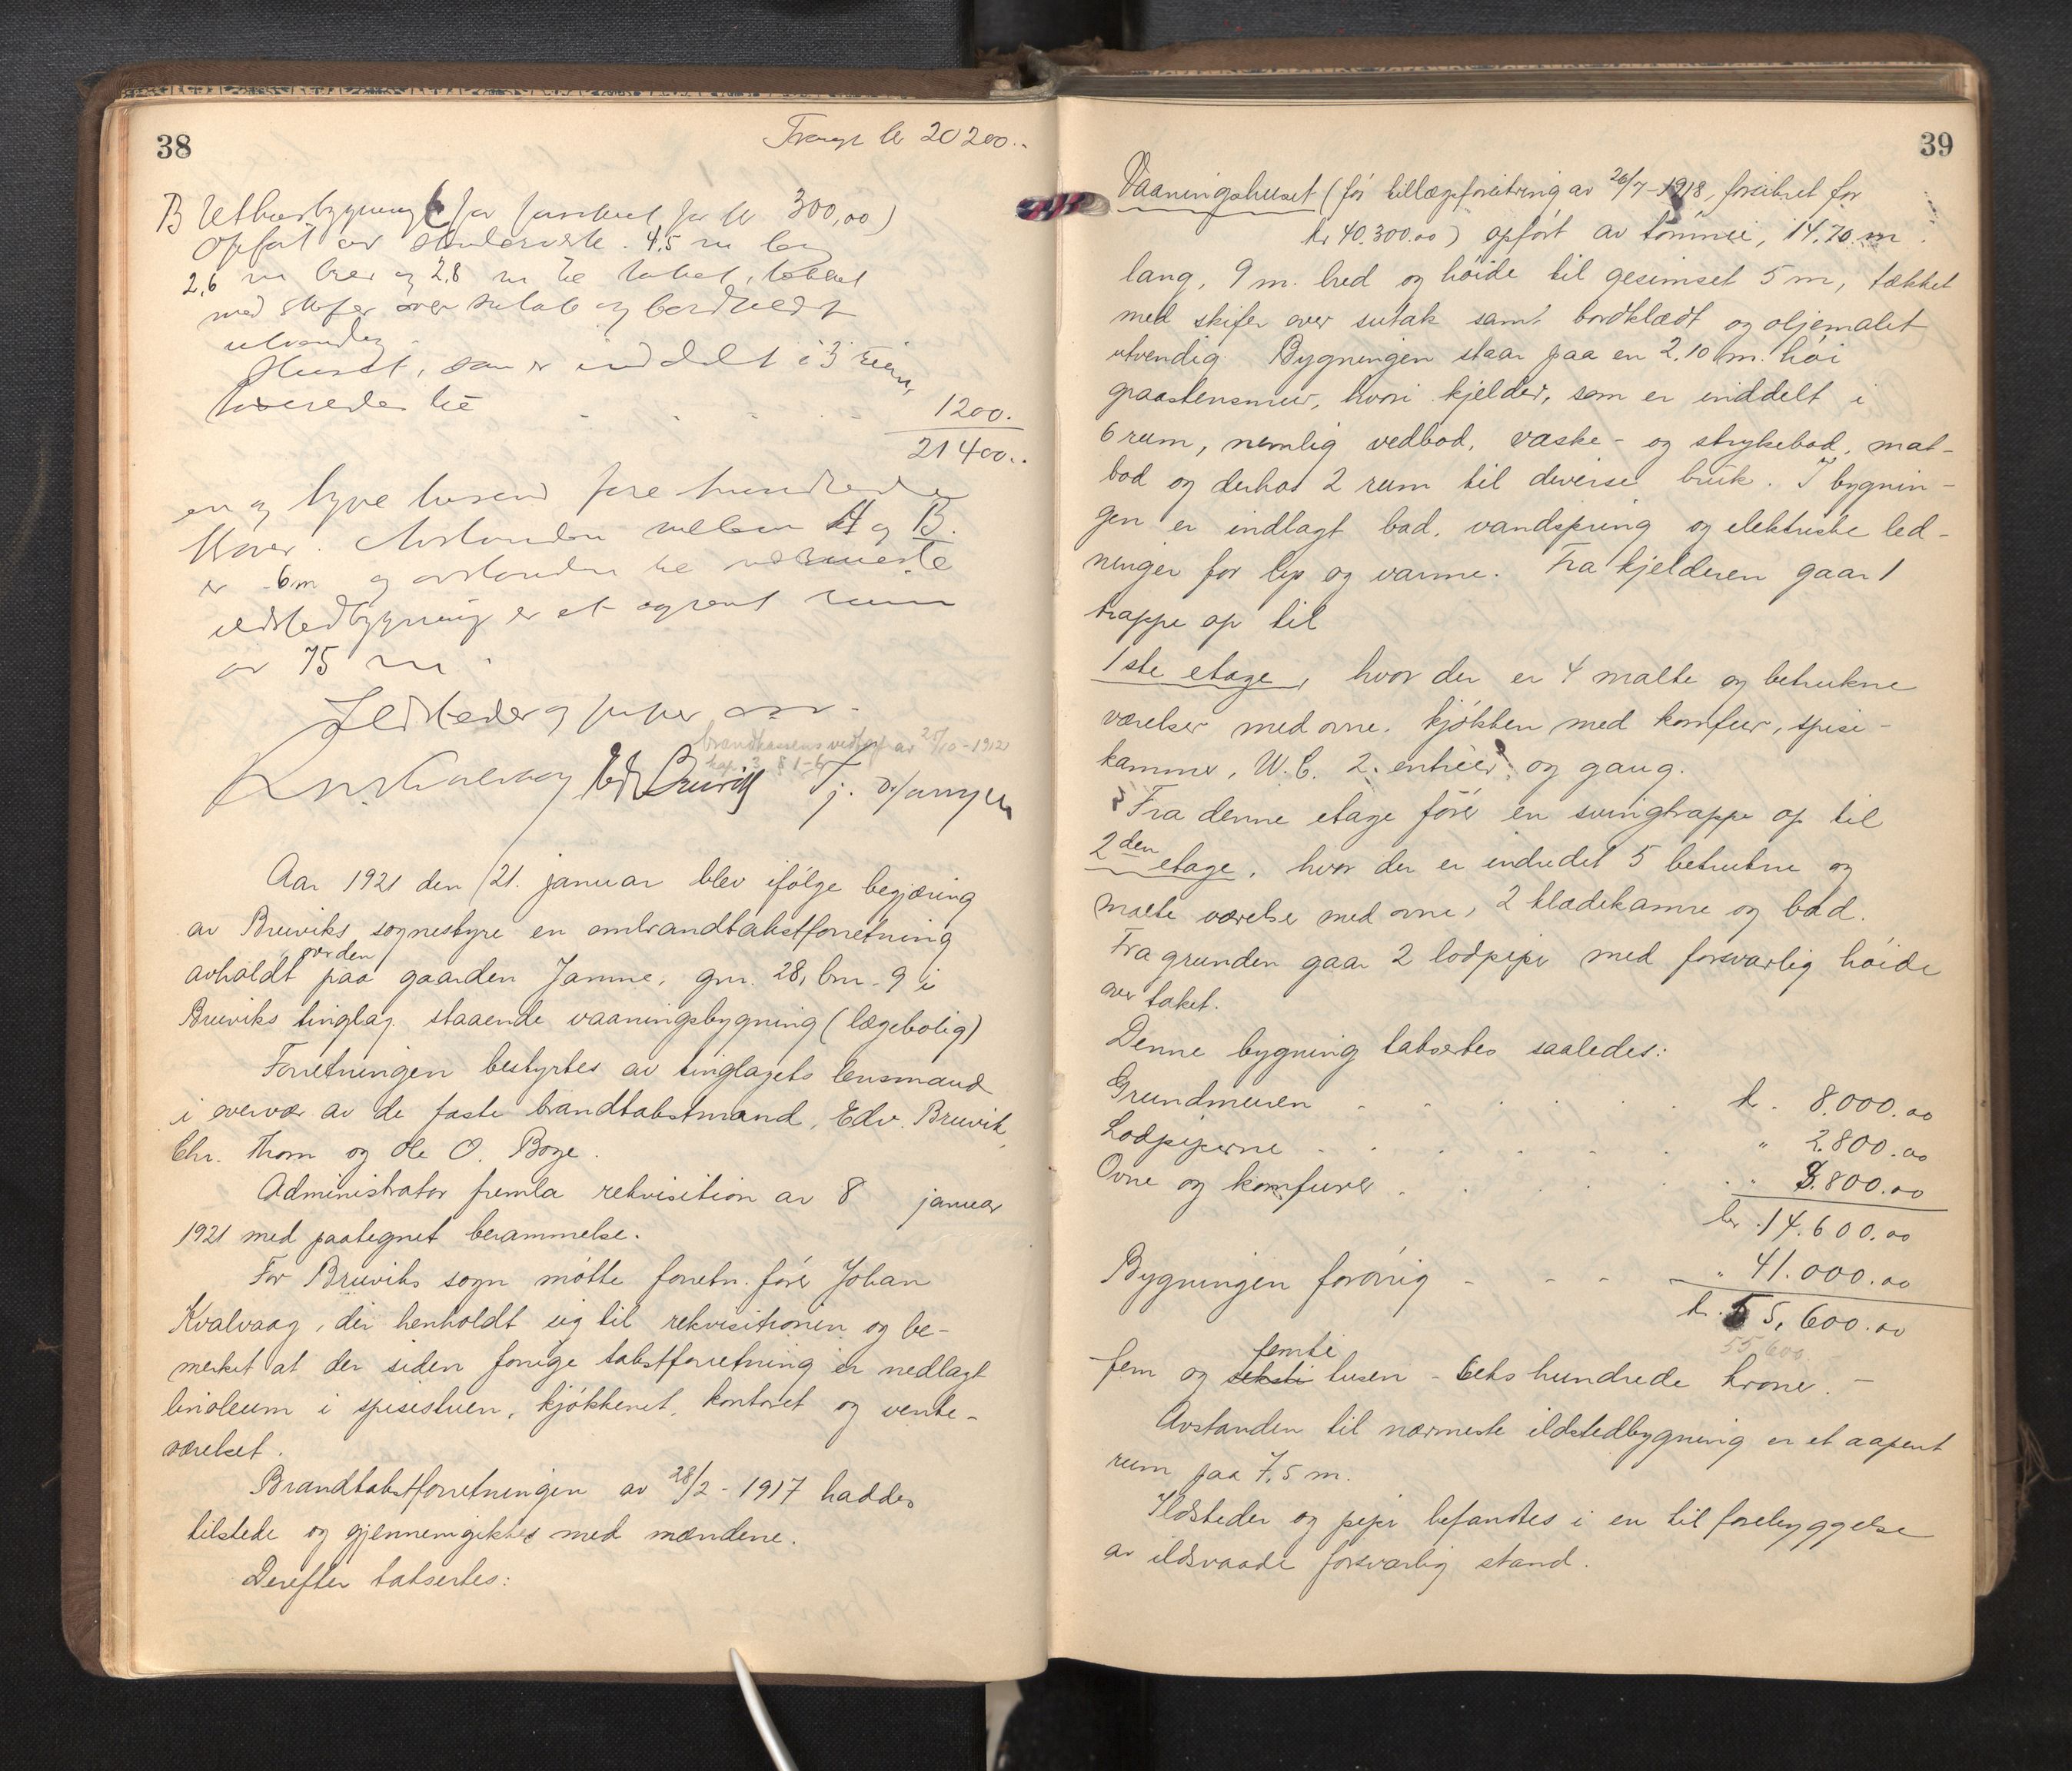 38
Transp. kr 20200..
B Uthusbygning (før forsikret for kr 300,00)
opført av stenderverk. 4.5 m lang
2,6 m bred og 2,8 m til taket, tækket
med skifer over sutak og bordklædt
utvendig.
Huset, som er inddelt i 3 rum,
takseredes til 1200.
21400..
en og tyve tusend fire hundrede
kroner. Avstanden mellem A og B.
er 6m og avstanden til nærmeste
ildstedbygning er et aapent rum
av 75 m.
Ildsteder og piper
brandkassens vedtægt av 25/10-1912
kap. 3 § 1-6
Kvalvaag Edv Bruvik
Aar 1921 den 21. januar blev ifølge begjæring
av Bruviks sognestyre en ombrandtakstforretning
avholdt over den paa gaarden Jamne, gnr. 28, bnr. 9 i
Bruviks tinglag staaende vaaningsbygning (lægebolig)
Forretningen bestyrtes av tinglagets lensmand
i overvær av de faste brandtakstmænd, Edv. Bruvik,
Chr. Thom og Ole O. Boge.
Administrator fremla rekvisition av 8 januar
1921 med paategnet berammelse.
For Bruviks sogn møtte forretn. fører Johan
Kvalvaag, der henholdt sig til rekvisitionen og be-
merket at der siden forrige takstforretning er nedlagt
linoleum i spisestuen, kjøkkenet, kontoret og vente-
værelset.
Brandtakstforretningen av 28/2 - 1917 haddes
tilstede og gjennemgikkes med mændene.
Derefter taksertes:
39
Vaaningshuset (før tillægsforsikring av 26/7-1918, forsikret for
kr 40.300.00) opført av tømmer, 14.70 m
lang, 9 m. bred og høide til gesimset 5 m, tækket
med skifer over sutak samt bordklædt og oljemalet
utvendig. Bygningen staar paa en 2.10 m. høi
graastensmur, hvori kjelder, som er inddelt i
6 rum, nemlig vedbod, vaske- og strykebod, mat-
bod og derhos 2 rum til diverse bruk. I bygnin-
gen er indlagt bad, vandspring og elektriske led-
ninger for lys og varme. Fra kjelderen gaar 1
trappe op til
1ste etage, hvor der er 4 malte og betrukne
værelser med ovne, kjøkken med komfur, spise-
kammer, W.C. 2 entréer og gang.
Fra denne etage fører en svingtrappe op til
2den etage, hvor der er indredet 5 betrukne og
malte værelser med ovne, 2 klædekamre og bad.
Fra grunden gaar 2 lodpiper med forsvarlig høide
over taket.
Denne bygning taksertes saaledes:
Grundmuren kr. 8.000.00
Lodpiperne " 2.800.00
Ovne og komfurer " 3.800.00
kr. 14.600.00
Bygningen forøvrig " 41.000.00
kr. 55,600.00
55,600
fem og seksti femti tusen - seks hundrede kroner. -
Avstanden til nærmeste ildstedbygning er et aapent
rum paa 7,5 m.
Ildsteder og piper befandtes i en til forebyggelse
av ildsvaade forsvarlig stand.